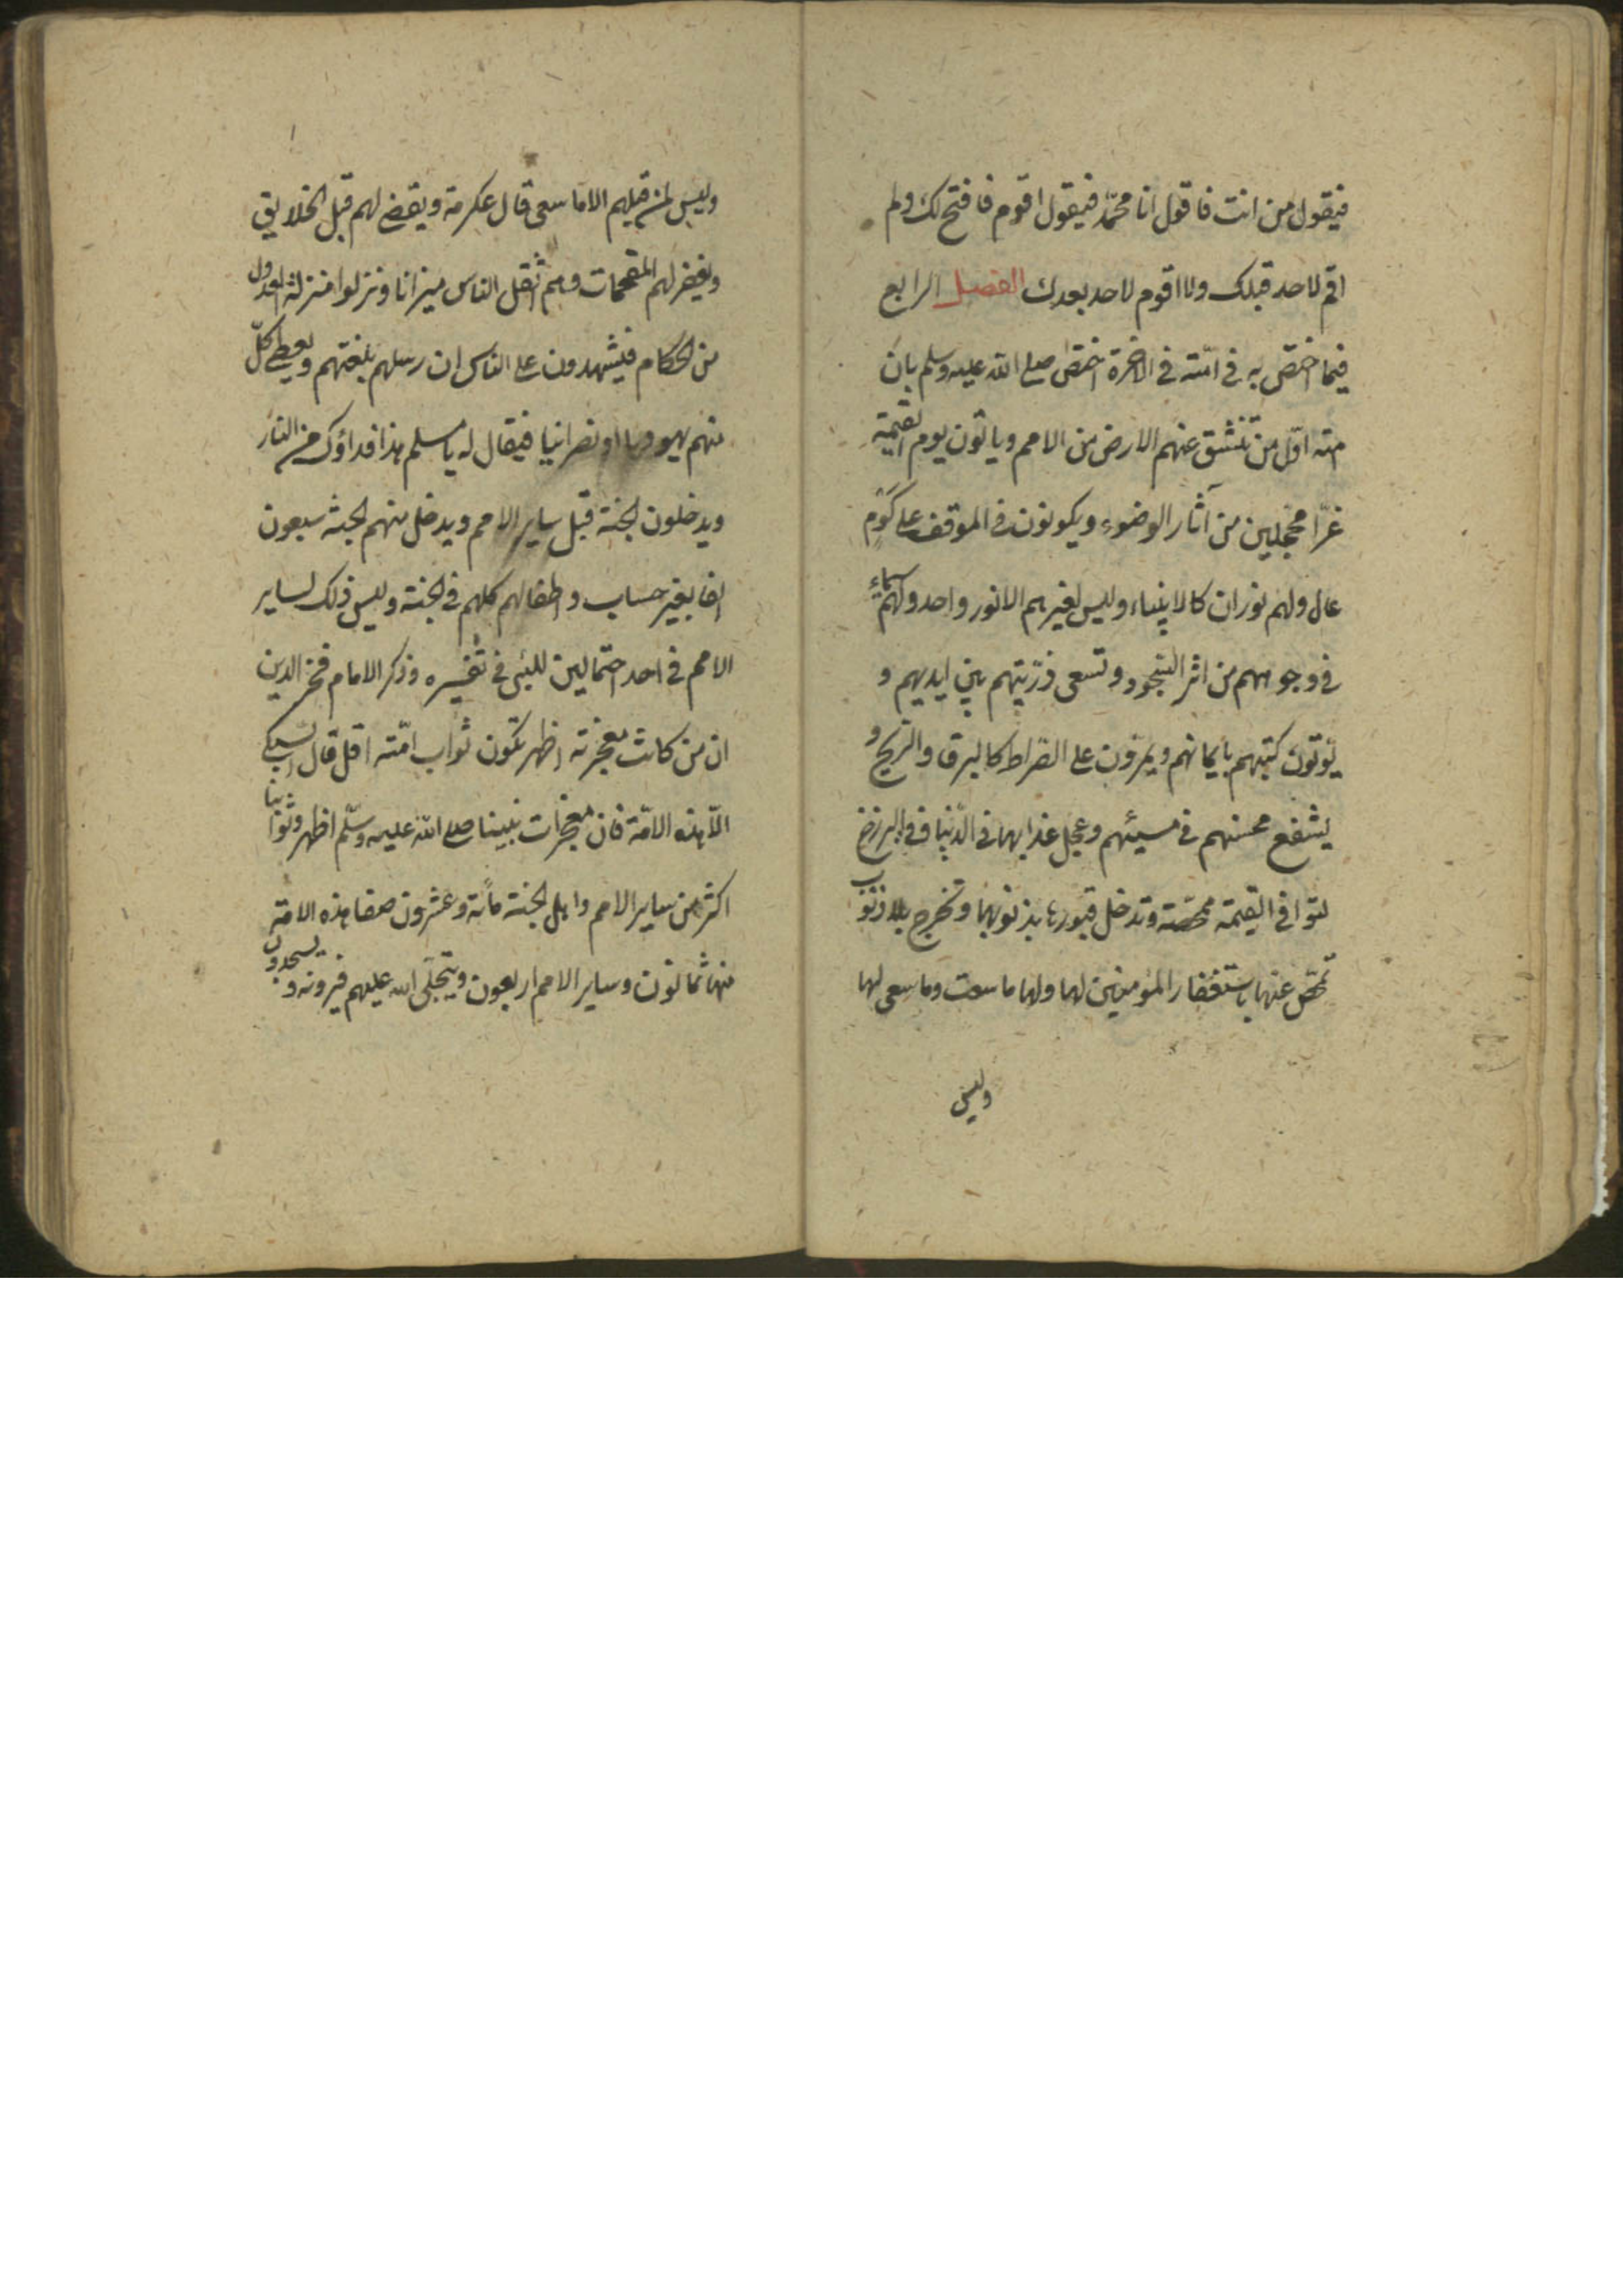 فيقول من انت فاقول انا محمّد فيقول اقوم فافتح لك ولم
اقم لاحد قبلك ولا اقوم لاحد بعدك الفصل الرابع
فيما اختصّ به في امّته في الاخرة اختصّ صلى الله عليه وسلم بان
امته اوّل من تنشق عنهم الارض من الامم وياتون يوم القيمة
غرّا محجّلين من آثار الوضوء ويكونون في الموقف على كوم
عال ولهم نوران كالانبياء وليس لغيرهم الا نور واحد ولهم سيماء
في وجوههم من اثر السّجود وتسعى ذرّيتهم بين ايديهم و
يؤتون كتبهم بايمانهم ويمرّون على الصّراط كالبرق والرّيح و
يشفع محسنهم في مسيئهم وعجل عذابها في الدّنيا وفي البرزخ
لتوافي القيمة ممحّصة وتدخل قبورها بذنوبها وتخرج بلا ذنوب
تمحّص عنها باستغفار المؤمنين لها ولها ما سعت وما سعى لها
وليس
وليس لمن قبلهم الا ما سعى قال عكرمة ويقضى لهم قبل الخلايق
ويغفر لهم المقحمات وهم اثقل الناس ميزانا ونزلوا منزلة العدول
من الحكام فيشهدون على الناس ان رسلهم بلغتهم ويعطى كلّ
منهم يهوديا او نصرانيا فيقال له يا مسلم هذا فداؤك من النار
ويدخلون الجنة قبل ساير الامم ويدخل منهم الجنة سبعون
الفا بغير حساب واطفالهم كلهم في الجنة وليس ذلك لساير
الامم في احد احتمالين للسّبكى في تفسيره وذكر الامام فخر الدين
ان من كانت معجزته اظهر تكون ثواب امّته اقل قال السبكى
الّا هذه الامّة فان معجزات نبينا صلى الله عليه وسلّم اظهر وثوابنا
اكثر من ساير الامم واهل الجنة مأئة وعشرون صفا هذه الامة
منها ثمانون وساير الامم اربعون ويتجلّى الله عليهم فيرونه ويسجدون